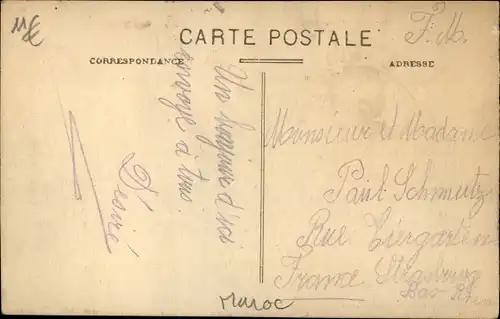 11€
F. M.
CARTE POSTALE
CORRESPONDANCE
ADRESSE
Un bonjour d'ici
envoyé à tous.
Désiré
Monsieur et Madame
Paul Schmutz
Rue Tiergarten
France Strasbourg
Bas Rhin
Maroc